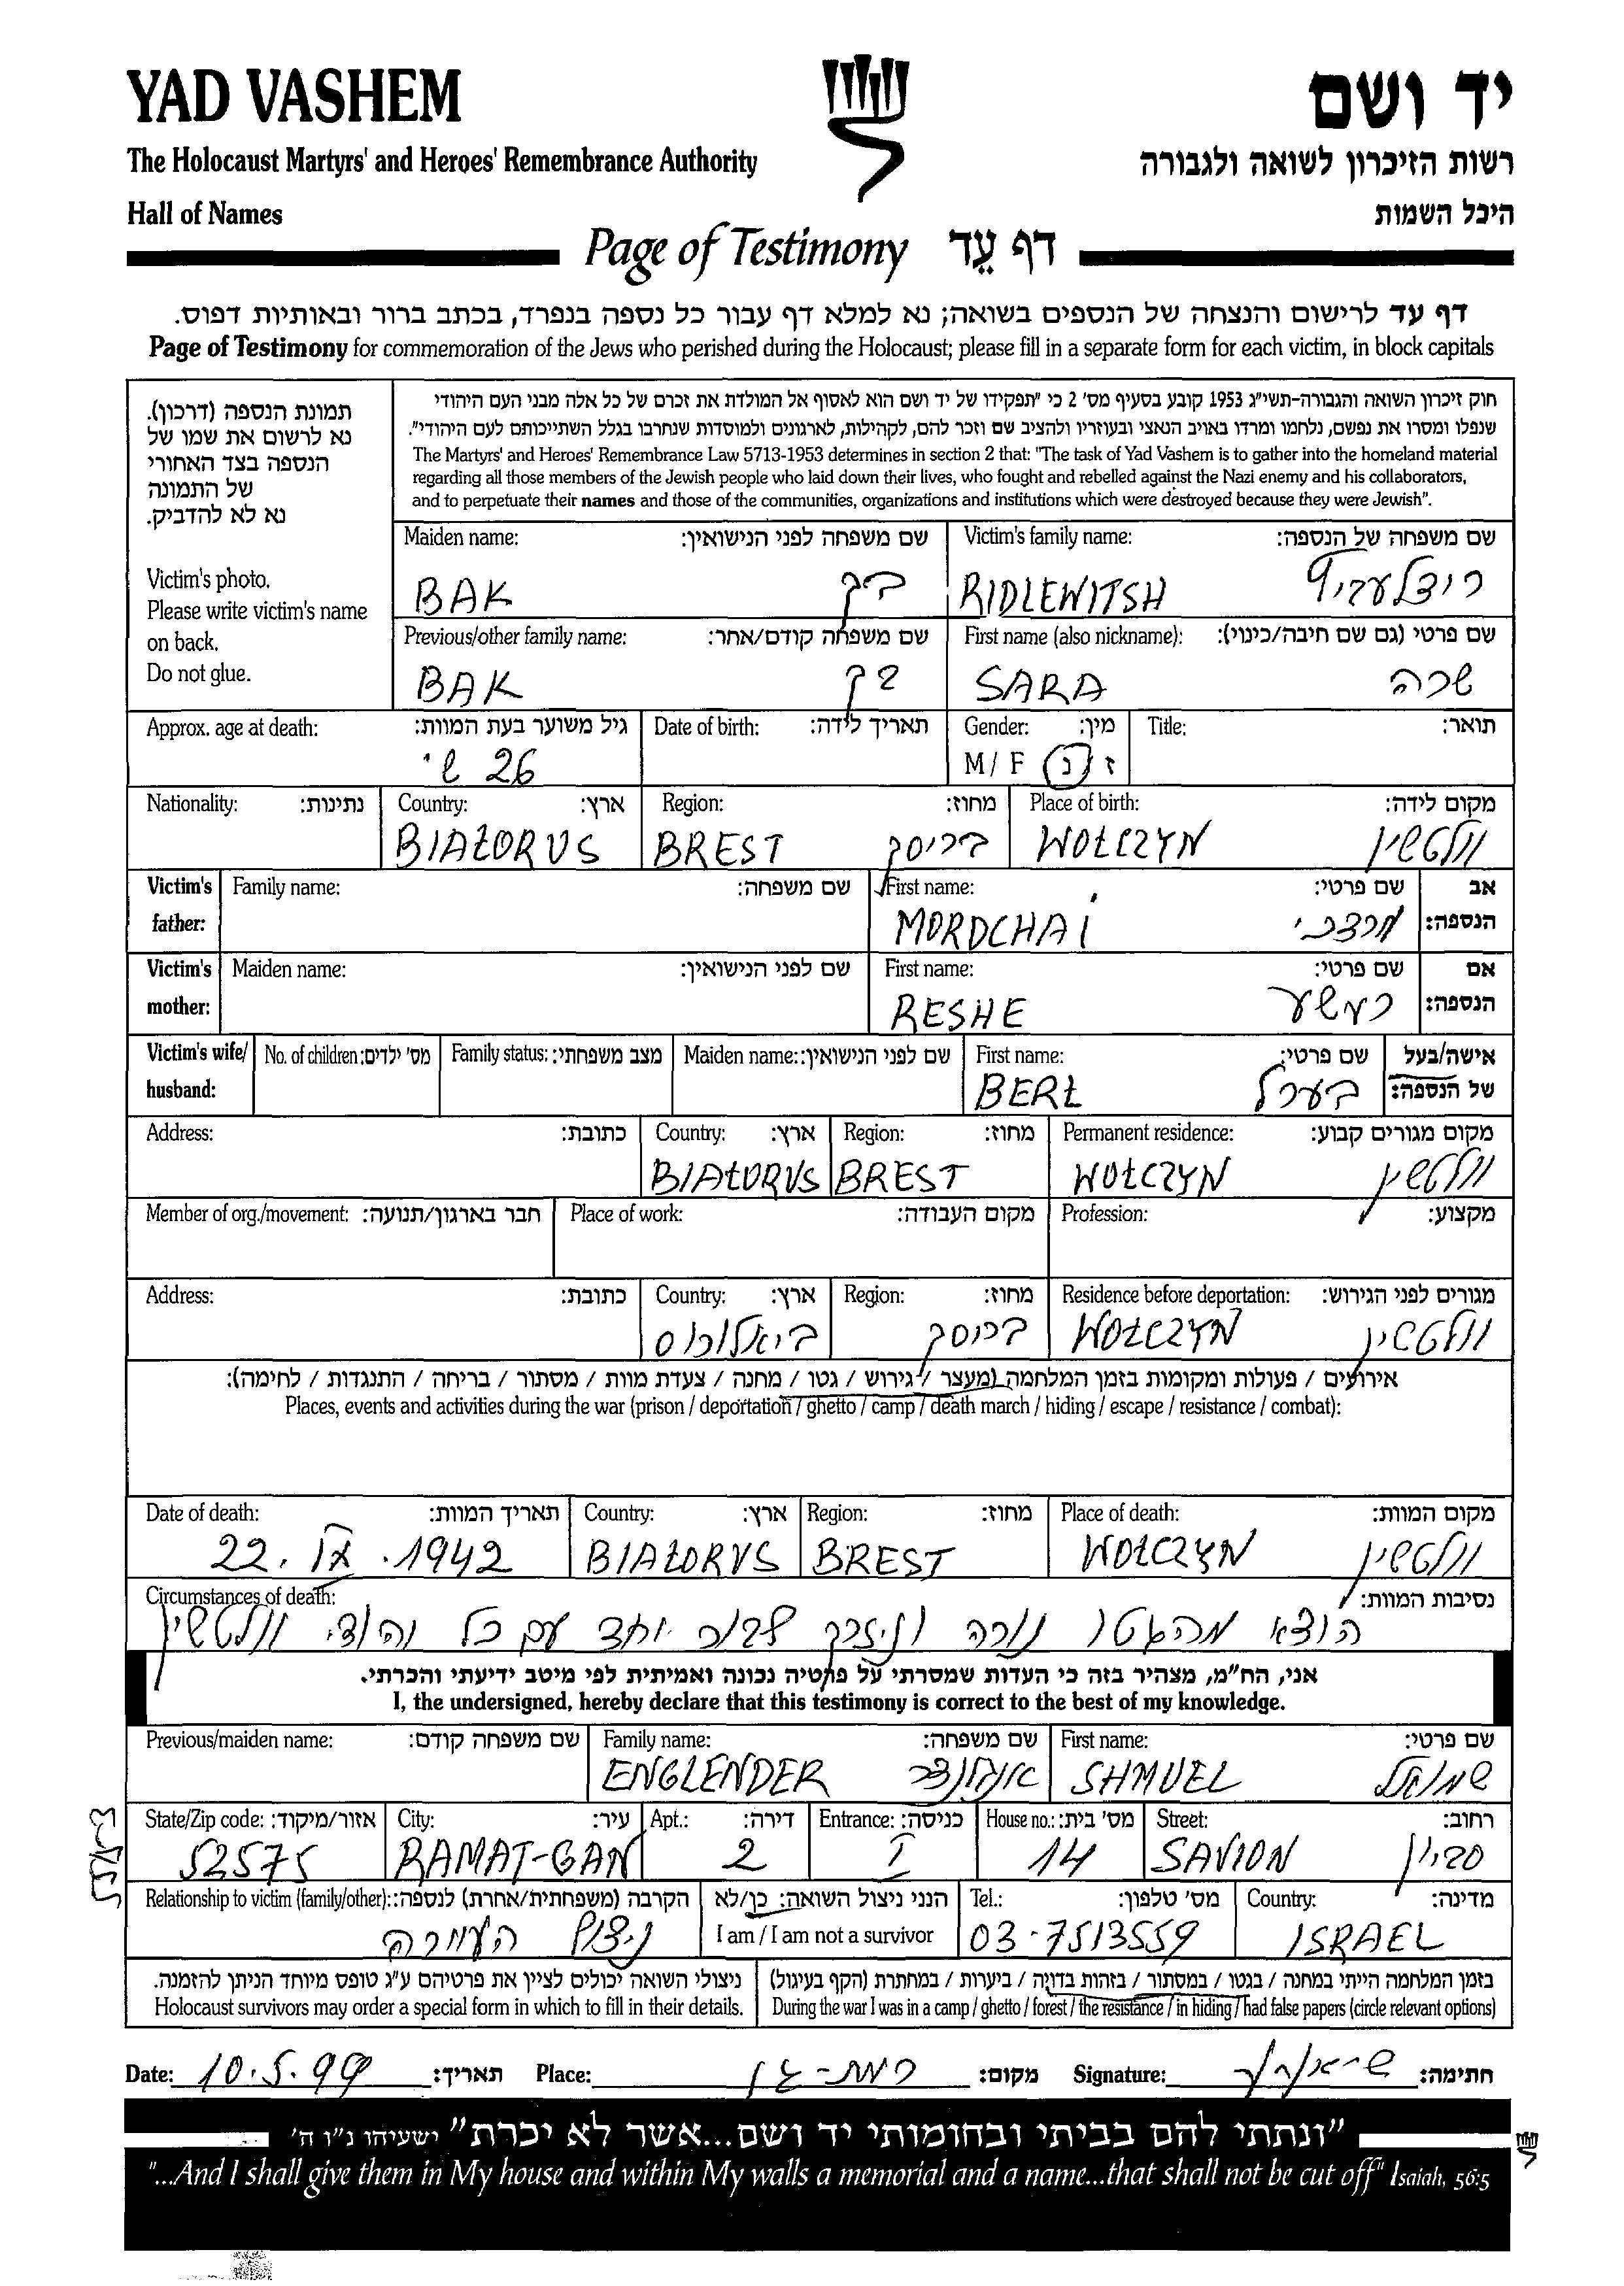 YAD VASHEM יד ושם
The Holocaust Martyrs' and Heroes' Remembrance Authority רשות הזיכרון לשואה ולגבורה
Hall of Names היכל השמות
Page of Testimony דף עֵד
דף עד לרישום והנצחה של הנספים בשואה; נא למלא דף עבור כל נספה בנפרד, בכתב ברור ובאותיות דפוס.
Page of Testimony for commemoration of the Jews who perished during the Holocaust; please fill in a separate form for each victim, in block capitals
תמונת הנספה (דרכון).
נא לרשום את שמו של
הנספה בצד האחורי
של התמונה
נא לא להדביק.
Victim's photo.
Please write victim's name
on back.
Do not glue.
חוק זיכרון השואה והגבורה-תשי"ג 1953 קובע בסעיף מס' 2 כי "תפקידו של יד ושם הוא לאסוף אל המולדת את זכרם של כל אלה מבני העם היהודי
שנפלו ומסרו את נפשם, נלחמו ומרדו באויב הנאצי ובעוזריו ולהציב שם וזכר להם, לקהילות, לארגונים ולמוסדות שנחרבו בגלל השתייכותם לעם היהודי".
The Martyrs' and Heroes' Remembrance Law 5713-1953 determines in section 2 that: "The task of Yad Vashem is to gather into the homeland material
regarding all those members of the Jewish people who laid down their lives, who fought and rebelled against the Nazi enemy and his collaborators,
and to perpetuate their names and those of the communities, organizations and institutions which were destroyed because they were Jewish".
Maiden name: שם משפחה לפני הנישואין: Victim's family name: שם משפחה של הנספה:
BAK בק RIDLEWITSH
Previous/other family name: שם משפחה קודם/אחר: First name (also nickname): שם פרטי (גם שם חיבה/כינוי):
BAK בק SARA שרה
Approx. age at death: גיל משוער בעת המוות: Date of birth: תאריך לידה: Gender: מין: Title: תואר:
26 ש' M / F ז / נ
Nationality: נתינות: Country: ארץ: Region: מחוז: Place of birth: מקום לידה:
BIAŁORUS BREST בריסק WOŁCZYN וולטשין
Victim's father: Family name: שם משפחה: First name: שם פרטי: אב הנספה:
MORDCHAI מרדכי
Victim's mother: Maiden name: שם לפני הנישואין: First name: שם פרטי: אם הנספה:
RESHE רעשע
Victim's wife/ husband: No. of children: מס' ילדים: Family status: מצב משפחתי: Maiden name: שם לפני הנישואין: First name: שם פרטי: אישה/בעל של הנספה:
BERŁ בערל
Address: כתובת: Country: ארץ: Region: מחוז: Permanent residence: מקום מגורים קבוע:
BIAŁORUS BREST WOŁCZYN וולטשין
Member of org./movement: חבר בארגון/תנועה: Place of work: מקום העבודה: Profession: מקצוע:
Address: כתובת: Country: ארץ: Region: מחוז: Residence before deportation: מגורים לפני הגירוש:
ביאלורוס בריסק WOŁCZYN וולטשין
אירועים / פעולות ומקומות בזמן המלחמה (מעצר / גירוש / גטו / מחנה / צעדת מוות / מסתור / בריחה / התנגדות / לחימה):
Places, events and activities during the war (prison / deportation / ghetto / camp / death march / hiding / escape / resistance / combat):
Date of death: תאריך המוות: Country: ארץ: Region: מחוז: Place of death: מקום המוות:
22. IX .1942 BIAŁORUS BREST WOŁCZYN וולטשין
Circumstances of death: נסיבות המוות:
הוצא מהגטו נורה ונזרק לבור יחד עם כל יהודי וולטשין
אני, הח"מ, מצהיר בזה כי העדות שמסרתי על פרטיה נכונה ואמיתית לפי מיטב ידיעתי והכרתי.
I, the undersigned, hereby declare that this testimony is correct to the best of my knowledge.
Previous/maiden name: שם משפחה קודם: Family name: שם משפחה: First name: שם פרטי:
ENGLENDER אנגלנדר SHMUEL שמואל
State/Zip code: אזור/מיקוד: City: עיר: Apt.: דירה: Entrance: כניסה: House no.: מס' בית: Street: רחוב:
52575 RAMAT-GAN 2 I 14 SAVION סביון
Relationship to victim (family/other): הקרבה (משפחתית/אחרת) לנספה: הנני ניצול השואה: כן/לא Tel.: מס' טלפון: Country: מדינה:
ניצול העיירה I am / I am not a survivor 03-7513559 ISRAEL
ניצולי השואה יכולים לציין את פרטיהם ע"ג טופס מיוחד הניתן להזמנה. בזמן המלחמה הייתי במחנה / בגטו / במסתור / בזהות בדויה / ביערות / במחתרת (הקף בעיגול)
Holocaust survivors may order a special form in which to fill in their details. During the war I was in a camp / ghetto / forest / the resistance / in hiding / had false papers (circle relevant options)
Date: 10.5.99 תאריך: Place: רמת-גן מקום: Signature: חתימה:
"ונתתי להם בביתי ובחומותי יד ושם...אשר לא יכרת" ישעיהו נ"ו ה'
"...And I shall give them in My house and within My walls a memorial and a name...that shall not be cut off" Isaiah, 56:5